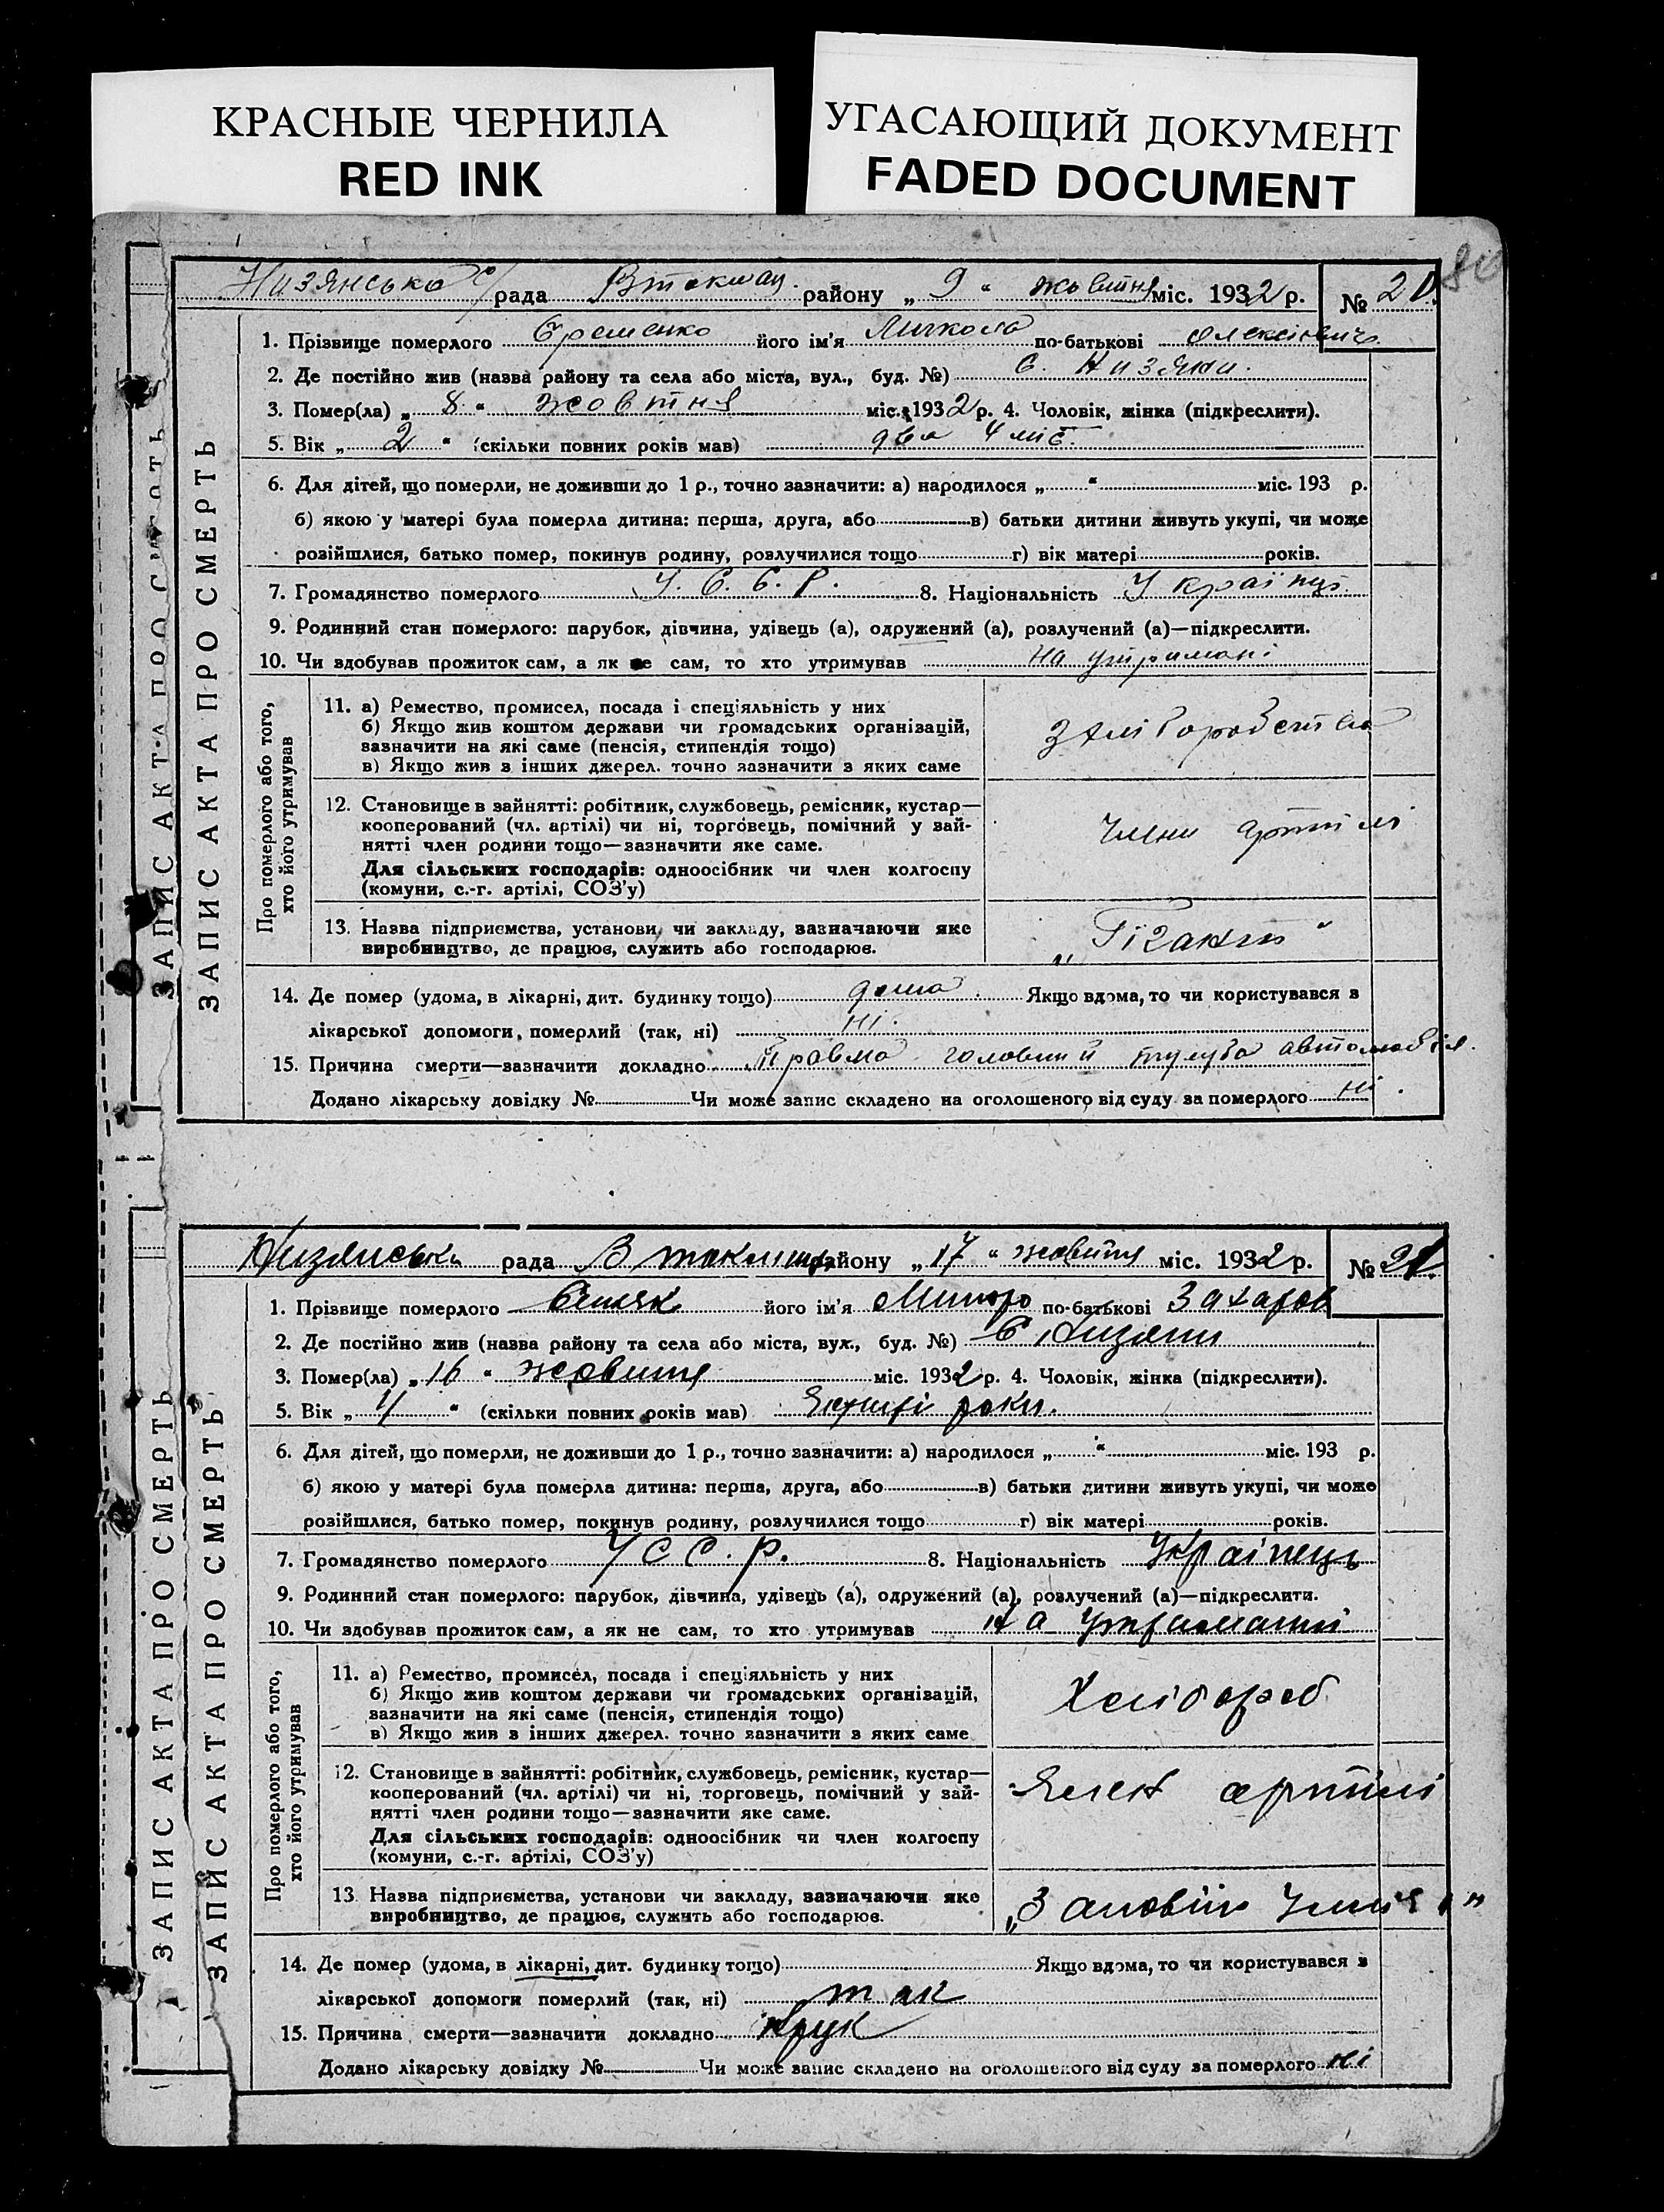 КРАСНЫЕ ЧЕРНИЛА
RED INK
УГАСАЮЩИЙ ДОКУМЕНТ
FADED DOCUMENT
Низянська с/рада В токмац. району „ 9 “ жовтня міс. 1932 р. № 20
1. Прізвище померлого Єременко його ім'я Микола по-батькові Олексієвич
2. Де постійно жив (назва району та села або міста, вул., буд. №) С. Низяни.
3. Помер(ла) „ 8 “ жовтня міс. 1932 р. 4. Чоловік, жінка (підкреслити).
5. Вік „ 2 “ (скільки повних років мав) два 4 міс.
6. Для дітей, що померли, не доживши до 1 р., точно зазначити: а) народилося „ “ міс. 193 р.
б) якою у матері була померла дитина: перша, друга, або в) батьки дитини живуть укупі, чи може
розійшлися, батько помер, покинув родину, розлучилися тощо г) вік матері років.
7. Громадянство померлого У. С. С. Р. 8. Національність Українц.
9. Родинний стан померлого: парубок, дівчина, удівець (а), одружений (а), розлучений (а)—підкреслити.
10. Чи здобував прожиток сам, а як не сам, то хто утримував на утримані
Про померлого або того,
хто його утримував
11. а) Ремество, промисел, посада і спеціяльність у них
б) Якщо жив коштом держави чи громадських організацій,
зазначити на які саме (пенсія, стипендія тощо)
в) Якщо жив з інших джерел. точно зазначити з яких саме
12. Становище в зайнятті: робітник, службовець, ремісник, кустар—
кооперований (чл. артілі) чи ні, торговець, помічний у зай-
нятті член родини тощо—зазначити яке саме.
Для сільських господарів: одноосібник чи член колгоспу
(комуни, с.-г. артілі, СОЗ'у)
члени артілі
13. Назва підприємства, установи, чи закладу, зазначаючи яке
виробництво, де працює, служить або господарює.
„Гігант“
14. Де помер (удома, в лікарні, дит. будинку тощо) дома. Якщо вдома, то чи користувався з
лікарської допомоги, померлий (так, ні) ні.
15. Причина смерти—зазначити докладно травма головний тулуба автомобіля.
Додано лікарську довідку № Чи може запис складено на оголошеного від суду за померлого ні.
ЗАПИС АКТА ПРО СМЕРТЬ
ЗАПИС АКТА ПРО СМЕРТЬ
Низянська рада В токмац району „17 “ жовтня міс. 1932 р. № 21.
1. Прізвище померлого його ім'я по-батькові Захаров
2. Де постійно жив (назва району та села або міста, вул., буд. №) С Низяни
3. Помер(ла) „ 16 “ жовтня міс. 1932 р. 4. Чоловік, жінка (підкреслити).
5. Вік „ 4 “ (скільки повних років мав) роки.
6. Для дітей, що померли, не доживши до 1 р., точно зазначити: а) народилося „ “ міс. 193 р.
б) якою у матері була померла дитина: перша, друга, або в) батьки дитини живуть укупі, чи може
розійшлися, батько помер, покинув родину, розлучилися тощо г) вік матері років.
7. Громадянство померлого У С С. Р. 8. Національність Українець
9. Родинний стан померлого: парубок, дівчина, удівець (а), одружений (а), розлучений (а)—підкреслити.
10. Чи здобував прожиток сам, а як не сам, то хто утримував на утриманні
Про померлого або того,
хто його утримував
11. а) Ремество, промисел, посада і спеціяльність у них
б) Якщо жив коштом держави чи громадських організацій,
зазначити на які саме (пенсія, стипендія тощо)
в) Якщо жив з інших джерел. точно зазначити з яких саме
Хлібороб
12. Становище в зайнятті: робітник, службовець, ремісник, кустар—
кооперований (чл. артілі) чи ні, торговець, помічний у зай-
нятті член родини тощо—зазначити яке саме.
Для сільських господарів: одноосібник чи член колгоспу
(комуни, с.-г. артілі, СОЗ'у)
Член артілі
13. Назва підприємства, установи чи закладу, зазначаючи яке
виробництво, де працює, служить або господарює.
„Заповіт Ілліча“
14. Де помер (удома, в лікарні, дит. будинку тощо) Якщо вдома, то чи користувався з
лікарської допомоги померлий (так, ні) так
15. Причина смерти—зазначити докладно Круп
Додано лікарську довідку № Чи може запис складено на оголошеного від суду за померлого ні
ЗАПИС АКТА ПРО СМЕРТЬ
ЗАПИС АКТА ПРО СМЕРТЬ